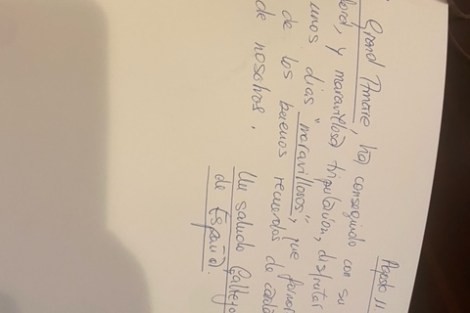 Agosto 11
Grand Amore, ha conseguido con su
y maravillosa tripulación, disfrutar
unos dias "maravillosos", que
de los buenos recuerdos de cada
de nosotros.
Un saludo
de España.